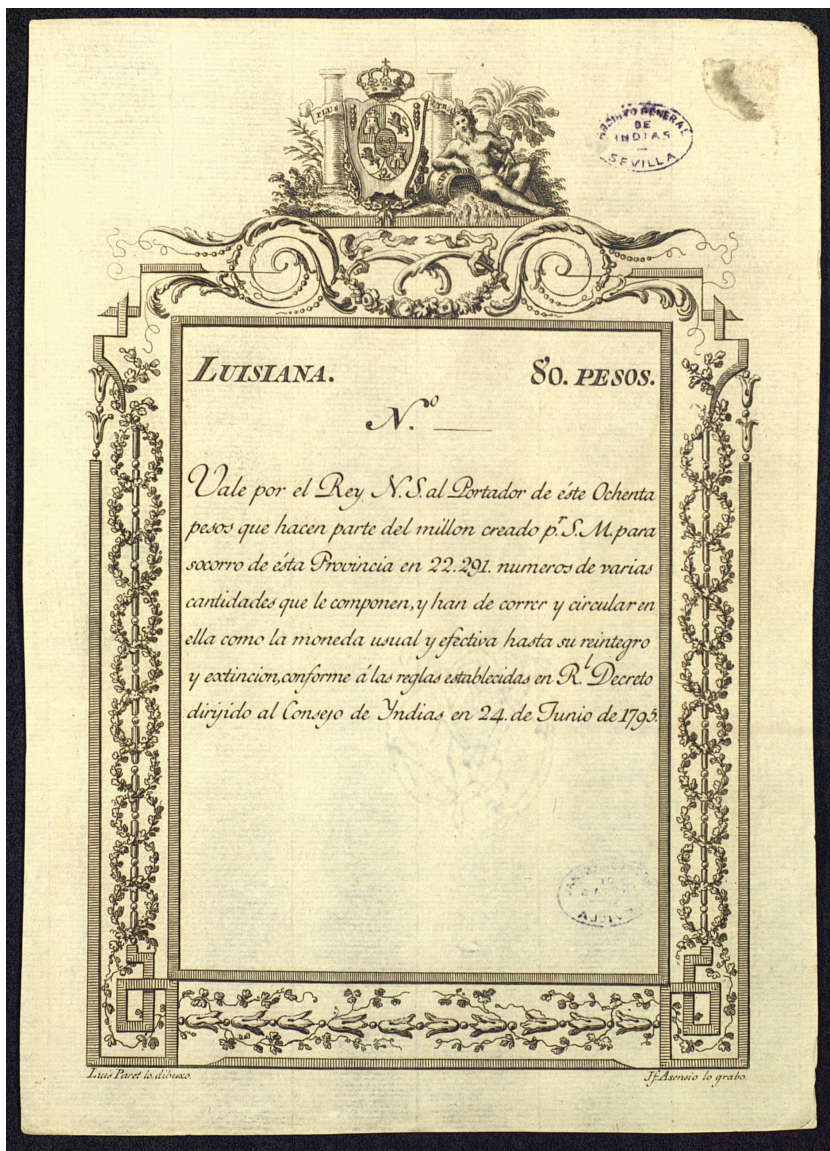 PLUS
ARCHIVO GENERAL
DE
INDIAS
SEVILLA
LUISIANA. 80. PESOS.
N.º
Vale por el Rey N.S. al Portador de éste Ochenta
pesos que hacen parte del millon creado p.r S.M. para
socorro de ésta Provincia en 22.291. numeros de varias
cantidades que le componen, y han de correr y circular en
ella como la moneda usual y efectiva hasta su reintegro
y extincion, conforme á las reglas establecidas en R.l Decreto
dirijido al Consejo de Yndias en 24. de Junio de 1795.
Luis Paret lo dibuxo.
Jf Asensio lo grabo.